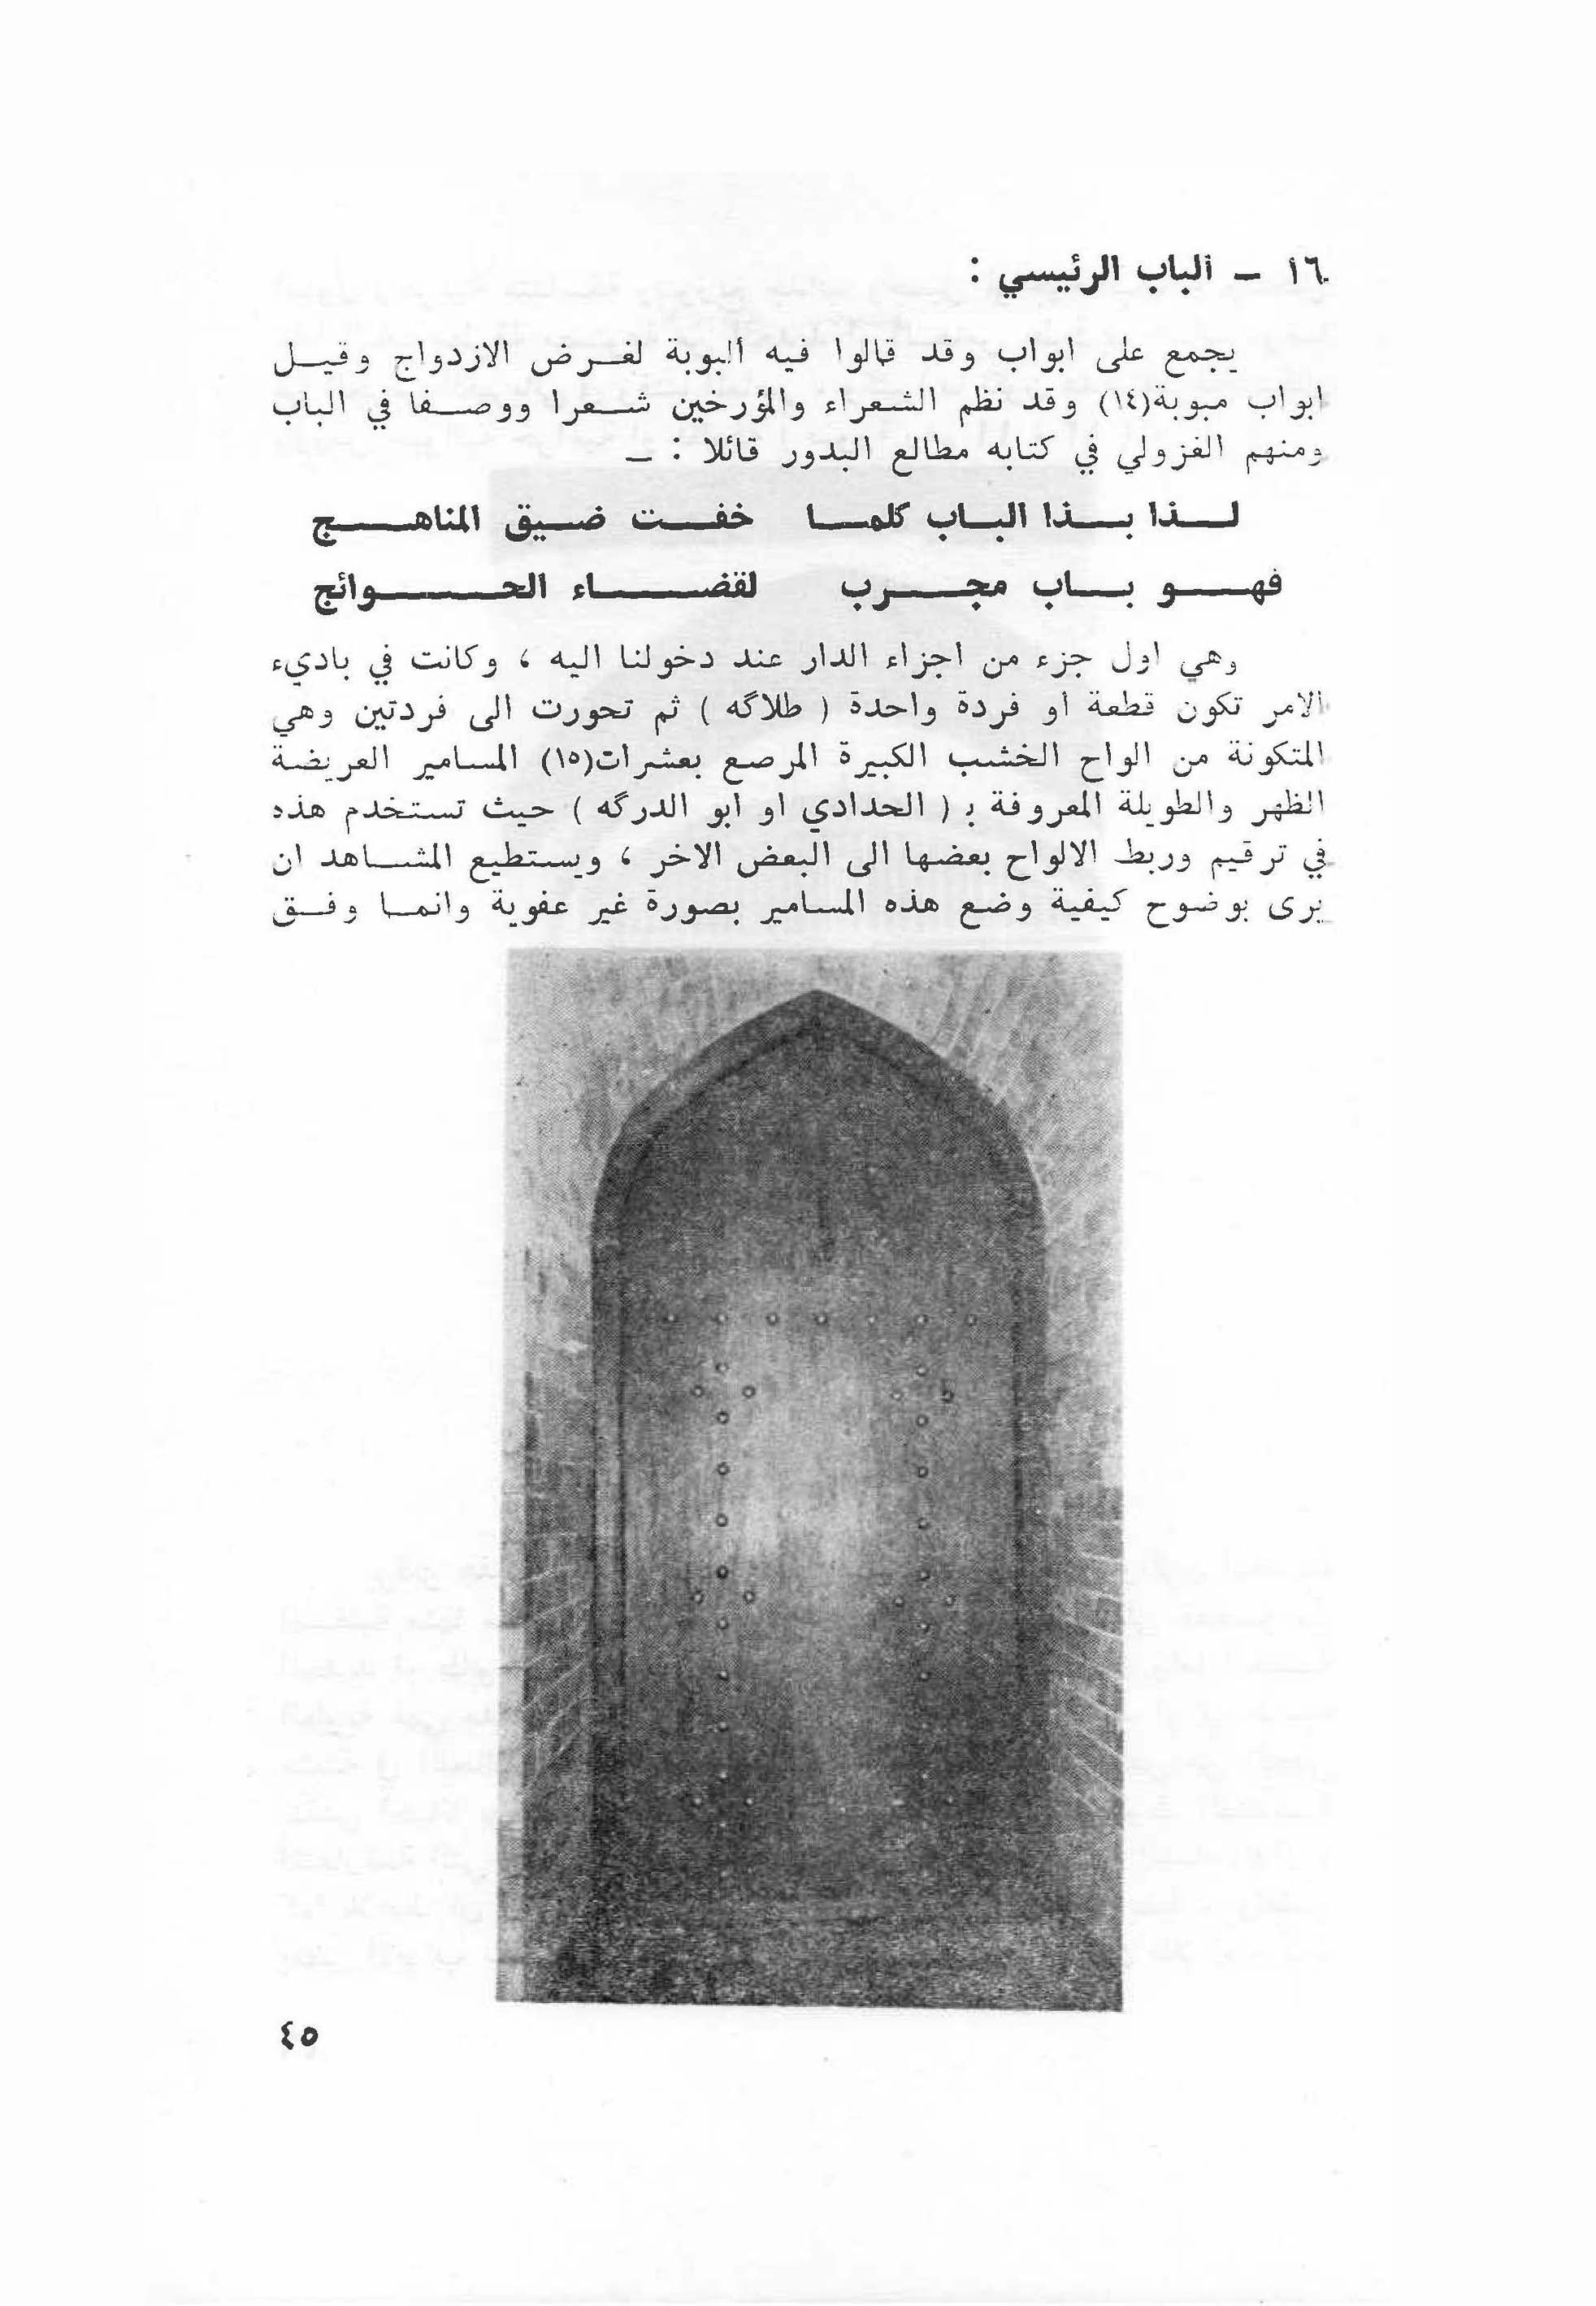 ١٦ - الباب الرئيسي :
يجمع على ابواب وقد قالوا فيه ألبوبة لغرض الازدواج وقيل
ابواب مبوبة(١٤) وقد نظم الشعراء والمؤرخين شعرا ووصفا في الباب
ومنهم الغزولي في كتابه مطالع البدور قائلا : -
لذا بذا الباب كلما خفت ضيق المناهج
فهو باب مجرب لقضاء الحوائج
وهي اول جزء من اجزاء الدار عند دخولنا اليه ، وكانت في باديء
الامر تكون قطعة او فردة واحدة ( طلاگه ) ثم تحورت الى فردتين وهي
المتكونة من الواح الخشب الكبيرة المرصع بعشرات(١٥) المسامير العريضة
الظهر والطويلة المعروفة بـ ( الحدادي او ابو الدرگه ) حيث تستخدم هذه
في ترقيم وربط الالواح بعضها الى البعض الاخر ، ويستطيع المشاهد ان
يرى بوضوح كيفية وضع هذه المسامير بصورة غير عفوية وانما وفق
٤٥